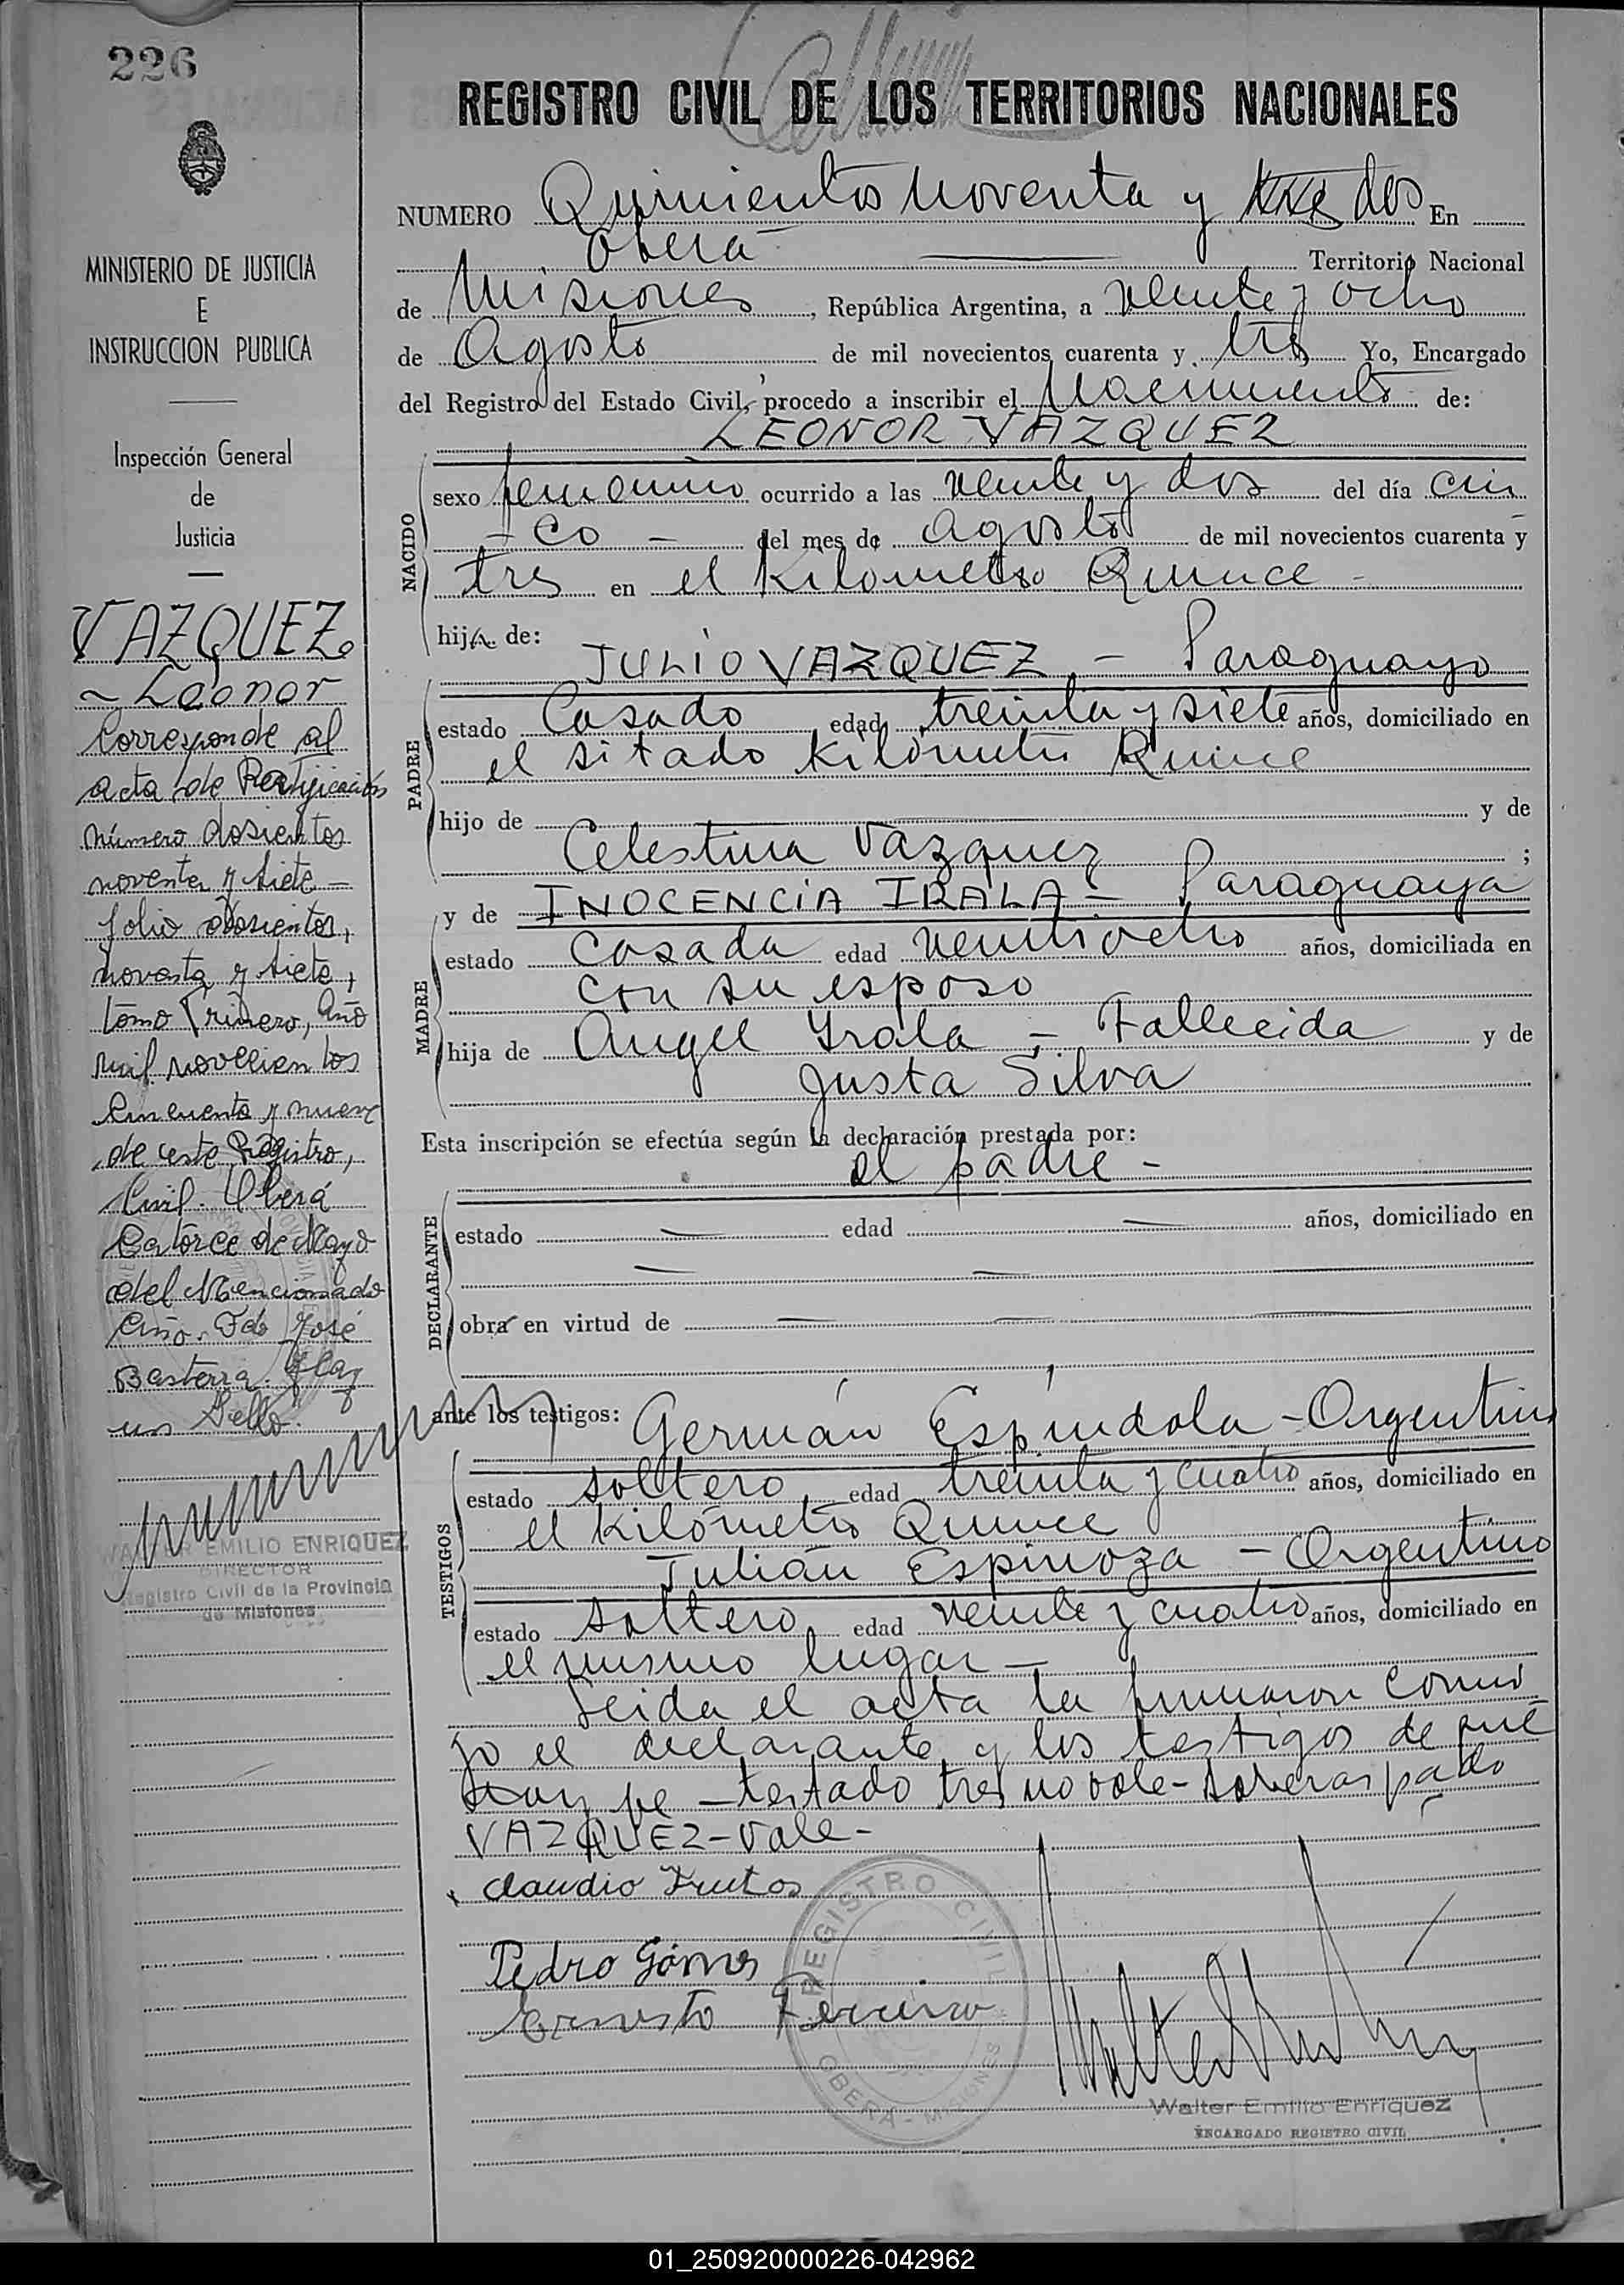 226
REGISTRO CIVIL DE LOS TERRITORIOS NACIONALES
NUMERO Quinientos noventa y tres dos En
Oberá Territorio Nacional
de Misiones, República Argentina, a veinte y ocho
de Agosto de mil novecientos cuarenta y tres Yo, Encargado
del Registro del Estado Civil, procedo a inscribir el Nacimiento de:
LEONOR VAZQUEZ
NACIDO
sexo femenino ocurrido a las veinte y dos del día cin
-co- del mes de agosto de mil novecientos cuarenta y
tres en el Kilometro Quince -
hija de:
JULIO VAZQUEZ - Paraguayo
PADRE
estado Casado edad treinta y siete años, domiciliado en
el sitado Kilómetro Quince
hijo de y de
Celestina Vazquez ;
y de INOCENCIA IRALA - Paraguaya
MADRE
estado Casada edad veintiocho años, domiciliada en
con su esposo
hija de Angel Irala - Fallecida y de
Justa Silva
Esta inscripción se efectúa según la declaración prestada por:
el padre -
DECLARANTE
estado edad años, domiciliado en
obra en virtud de
ante los testigos: Germán Espíndola - Argentino
TESTIGOS
estado soltero edad treinta y cuatro años, domiciliado en
el Kilómetro Quince
Julián Espinoza - Argentino
estado soltero edad veinte y cuatro años, domiciliado en
el mismo lugar -
Leida el acta la firmaron conmi
go el declarante y los testigos de que
doy fe - testado tres no vale - sobreraspado
VAZQUEZ - Vale -
Claudio Frutos
Pedro Gómes
Ernesto Ferreira
REGISTRO CIVIL
OBERÁ - MISIONES
Walter Emilio Enriquez
ENCARGADO REGISTRO CIVIL
MINISTERIO DE JUSTICIA
E
INSTRUCCION PUBLICA
Inspección General
de
Justicia
VAZQUEZ
~ Leonor
Corresponde al
acta de Rectificación
número dosientos
noventa y siete -
folio dosientos,
noventa y siete,
tomo Primero, año
mil novecientos
cincuenta y nueve
de este Registro,
Civil. Oberá
Catorce de Mayo
del Mencionado
año. Fdo José
Basterra. Hay
un Sello.
WALTER EMILIO ENRIQUEZ
DIRECTOR
Registro Civil de la Provincia
de Misiones
01_250920000226-042962